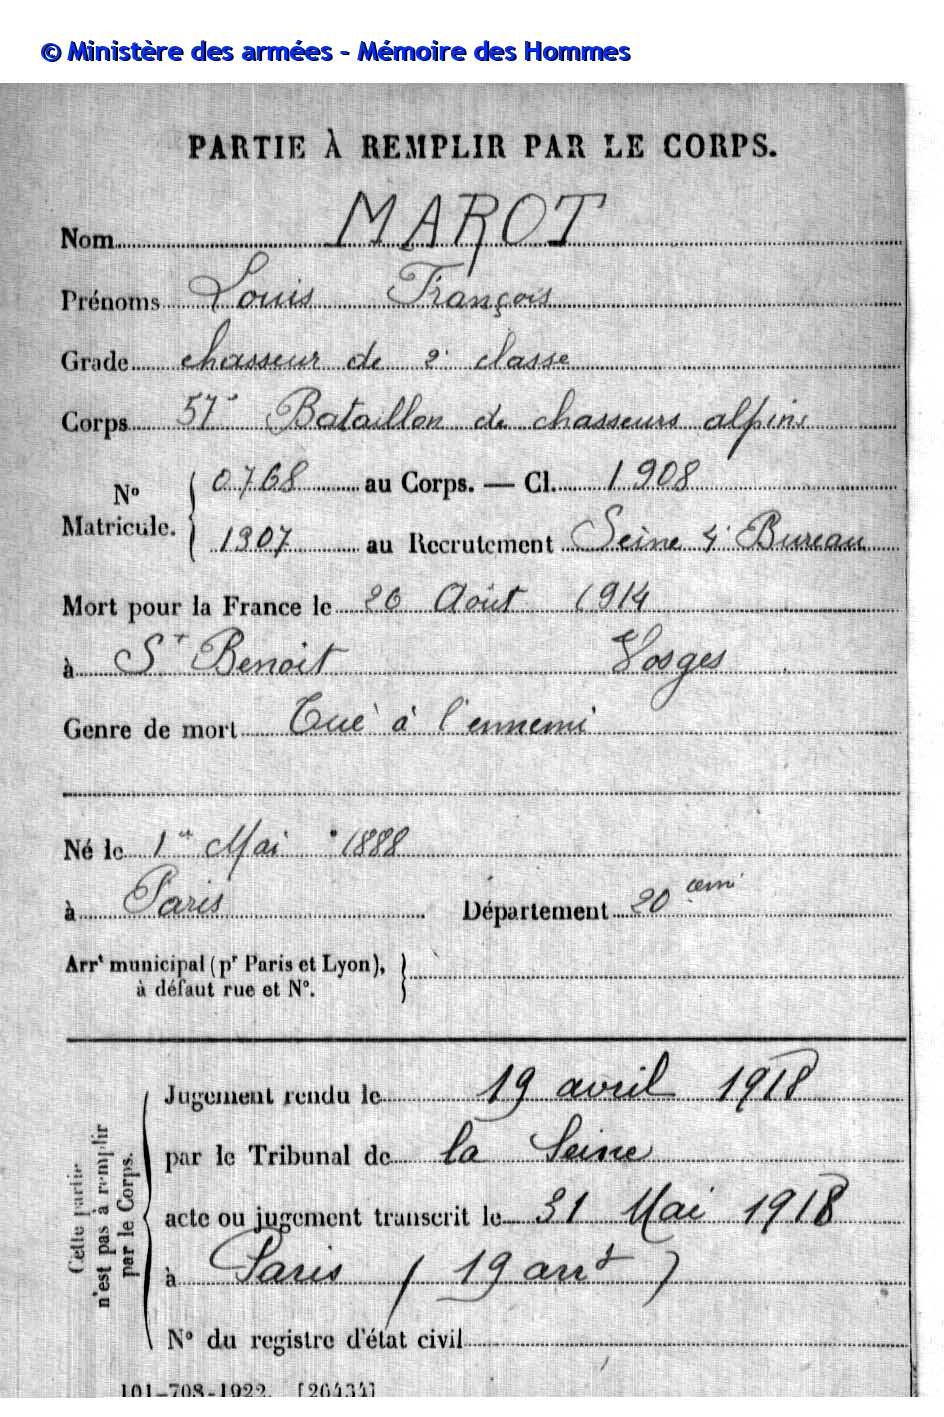 © Ministère des armées - Mémoire des Hommes
PARTIE À REMPLIR PAR LE CORPS.
Nom MAROT
Prénoms Louis François
Grade chasseur de 2e classe
Corps 57e Bataillon de chasseurs alpins
No Matricule. { 0768 au Corps. — Cl. 1908
1307 au Recrutement Seine 4e Bureau
Mort pour la France le 26 Août 1914
à St Benoit Vosges
Genre de mort Tué à l'ennemi
Né le 1er Mai 1888
à Paris Département 20 eme
Arrt municipal (pr Paris et Lyon), à défaut rue et No. }
Cette partie n'est pas à remplir par le Corps.
Jugement rendu le 19 avril 1918
par le Tribunal de la Seine
acte ou jugement transcrit le 31 Mai 1918
à Paris (19 arrt)
No du registre d'état civil
101-708-1922. [26434]